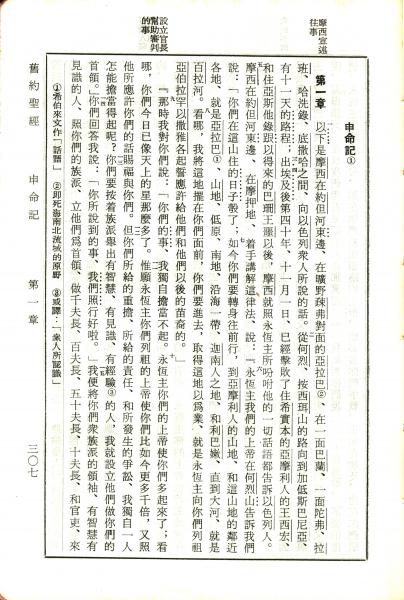 摩西宣述
往事
設立官長
幫助審判
的事
申命記①
第一章　以下是摩西在約但河東邊、在曠野疎弗對面的亞拉巴②、在一面巴蘭、一面陀弗、拉
班、哈洗錄、底撒哈之間、向以色列衆人所說的話。從何烈、按西珥山的路向到加低斯巴尼亞、
有十一天的路程；出埃及後第四十年、十一月一日、已經擊敗了住希實本的亞摩利人的王西宏、
和住亞斯他錄跟以得來的巴珊王噩以後，摩西就照永恆主所吩咐他的一切話語都告訴以色列人。
摩西在約但河東邊、在摩押地、着手講解這律法、說：『永恆主我們的上帝在何烈山告訴我們
說：「你們在這山住的日子彀了；如今你們要轉身往前行，到亞摩利人的山地、和這山地的鄰近
各地、就是亞拉巴①、山地、低原、南地、沿海一帶、迦南人之地、和利巴嫩、直到大河、就是
百拉河。看哪，我將這地擺在你們面前，你們要進去，取得這地以爲業、就是永恆主向你們列祖
亞伯拉罕以撒雅各起誓應許給他們和他們以後的苗裔的。」
『那時我對你們說：「你們的事、我獨自擔當不起。永恆主你們的上帝使你們多起來了；看
哪，你們今日已像天上的星那麼多了。惟願永恆主你們列祖的上帝使你們比如今更多千倍，又照
他所應許你們的話賜福與你們。但你們所給的重擔、所給的責任、和所發生的爭訟、我獨自一人
怎能擔當得起呢？你們要按着族派舉出有智慧、有見識、有經驗③的人、我就設立他們做你們的
首領。」你們回答我說：「你所說到的事、我們照行好啦。」我便將你們衆族派的領袖、有智慧有
見識的人、照你們的族派、立他們爲首領、做千夫長、百夫長、五十夫長、十夫長、和官吏、來
①希伯來文作「話語」　②卽死海南北流域的原野　③或譯：「衆人所認識」
舊約聖經　申命記　第一章　三〇七